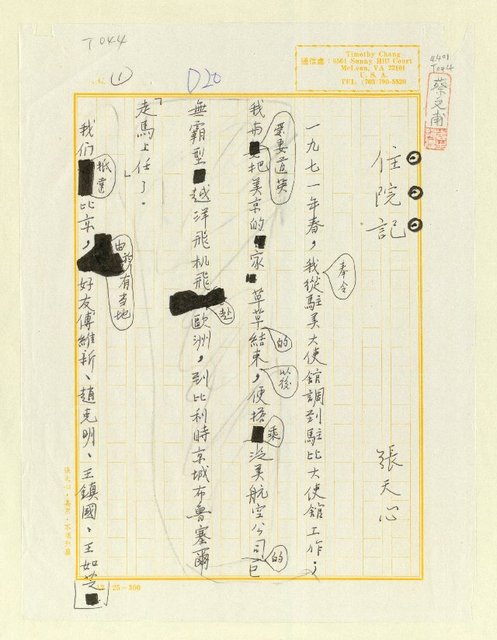 T044
(1)
D20
Timothy Chang
通信處：6561 Sunny Hill Court
McLean, VA 22101
U. S. A.
TEL. (703) 790-5520
T044
蔡文甫
住院記
張天心
一九七一年春，我奉令從駐美大使館調到駐比大使館工作；
我与愛妻道英把美京的家草草的結束以後，便搭乘泛美航空公司的巨
無霸型越洋飛机飛赴歐洲，到比利時京城布魯塞爾
「走馬上任了。」
我們抵達比京，由於有當地好友傅維新、趙克明、王鎮國、王如芝
25